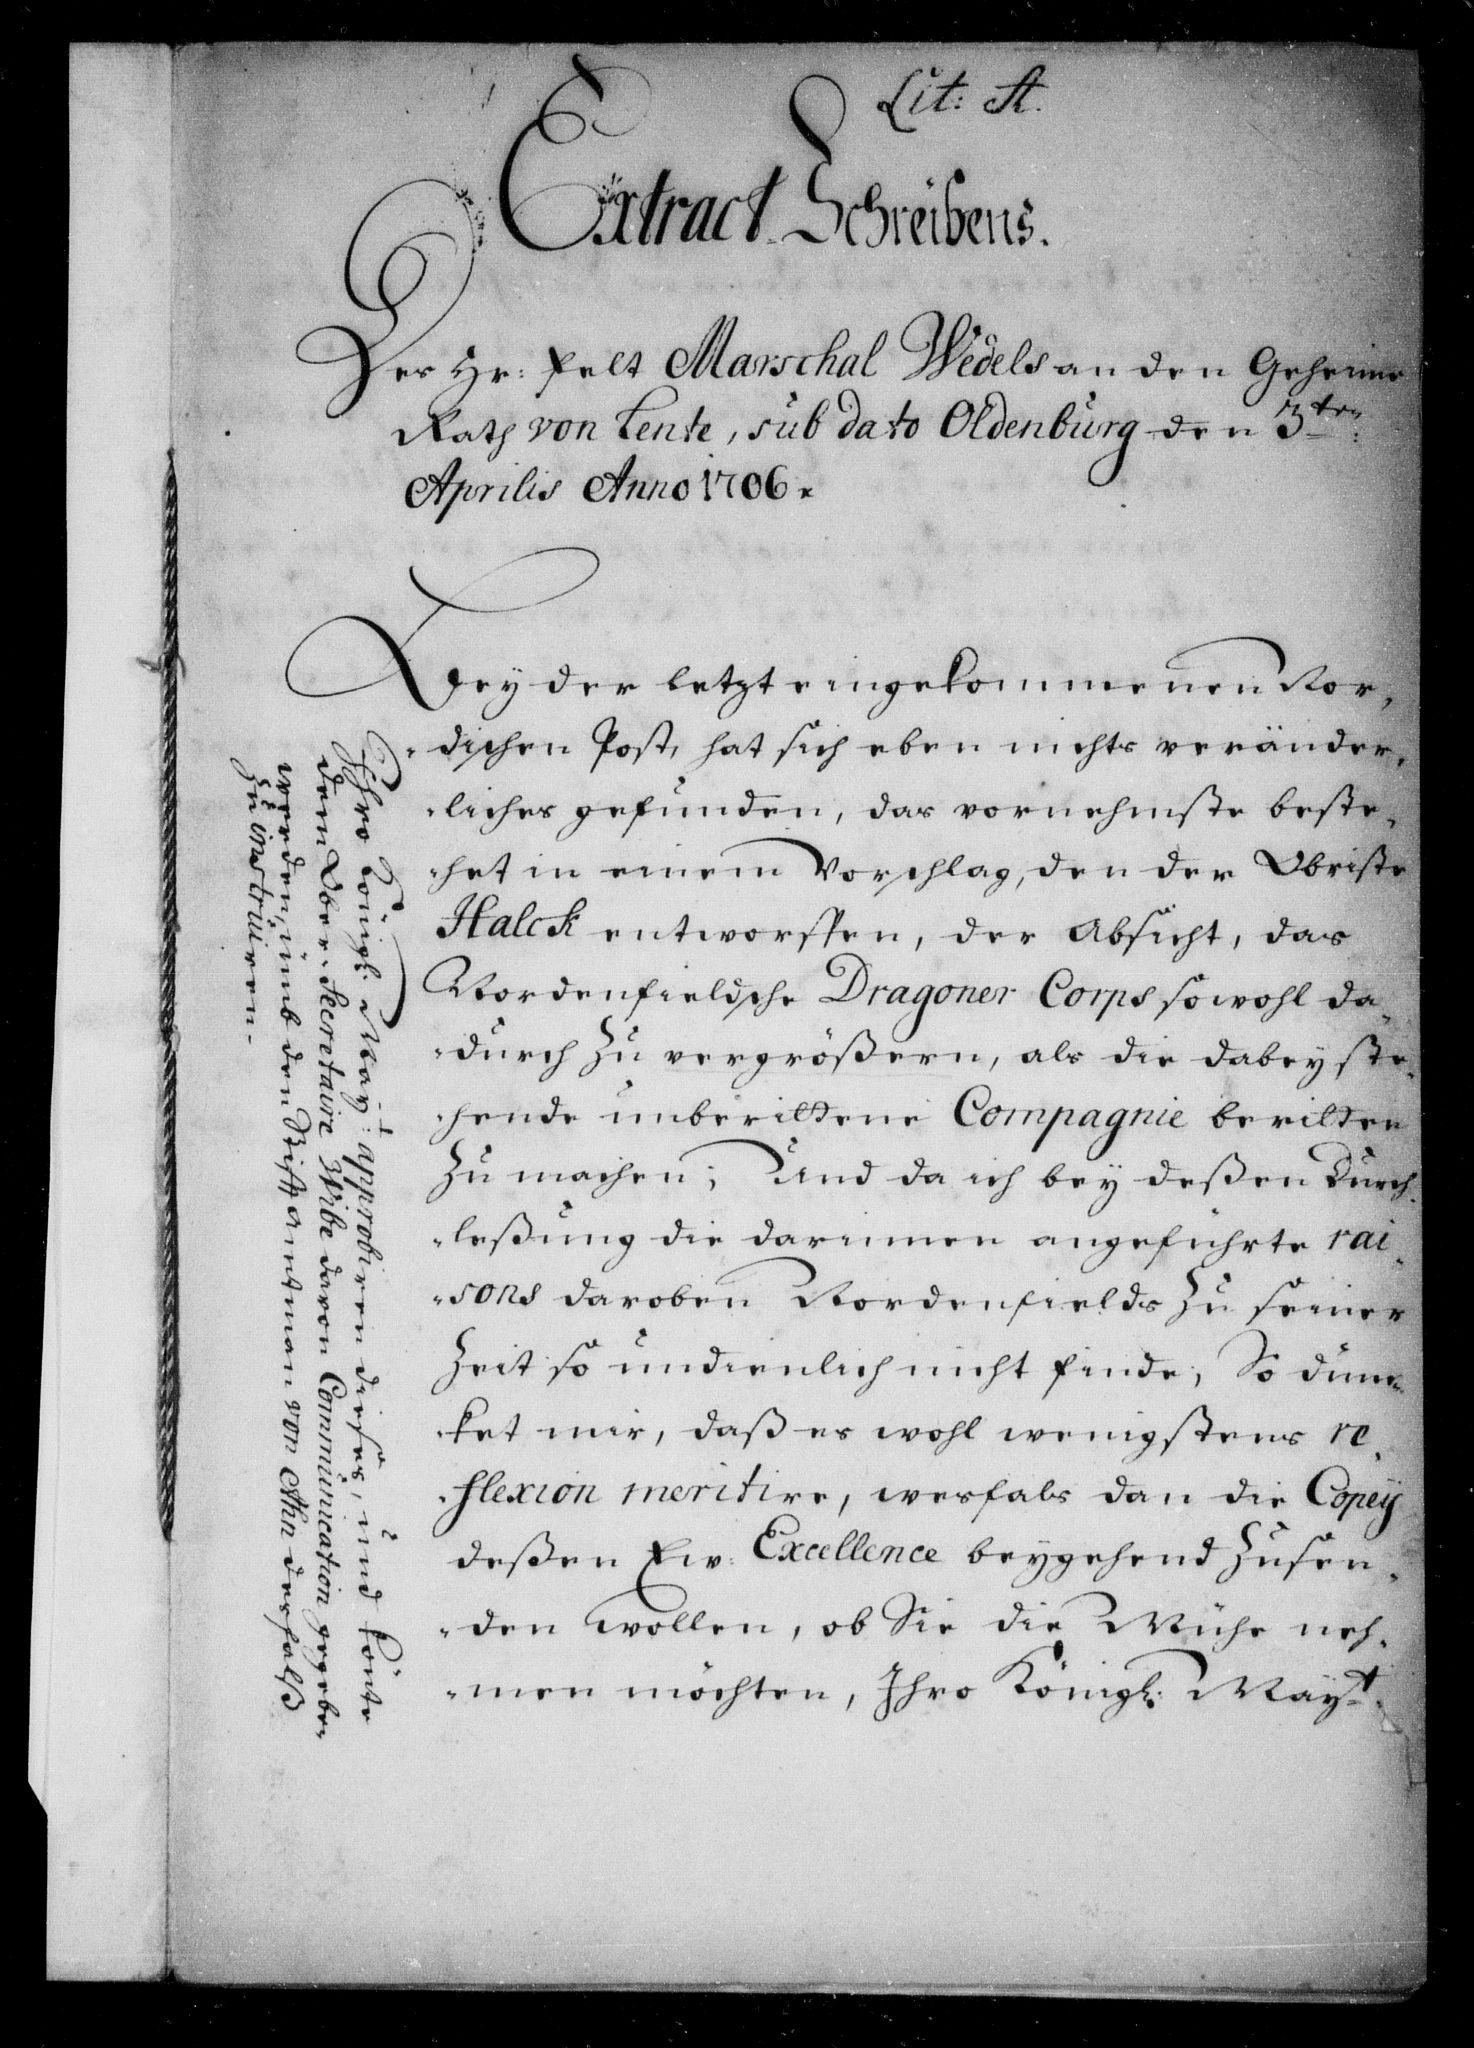 Lit: A.
Extract Schreibens.
Des Hr: Felt Marschal Wedels an den Geheime
Rath von Lente, sub dato Oldenburg den 3ten:
Aprilis Anno 1706.
Bey der letzt eingekommenen Nor-
dischen Post, hat sich eben nichts veränder-
liches gefunden, das vornehmste beste-
het in einem Vorschlag, den der Obriste
Halck entworffen, der Absicht, das
Nordenfieldsche Dragoner Corps sowohl da-
durch zu vergrößern, als die dabey ste-
hende unberittene Compagnie beritten
zu machen; Und da ich bey deßen Durch-
leßung die darinnen angeführte rai-
sons daroben Nordenfields zu seiner
Zeit so undienlich nicht finde, So dün-
ket mir, daß es wohl wenigstens re-
flexion meritire, wesfals dan die Copey
deßen Ew: Excellence beygehend zusen-
den wollen, ob Sie die Mühe neh-
men möchten, Ihro Königl: Mayt.
Ihro Königl: Mayt: approbiren dieses, und könte
dem Ober-Secretaire Wibe davon Communication gegeben
werden, umb den Stifftamtman von Ahn desfalß
zu instruiren.